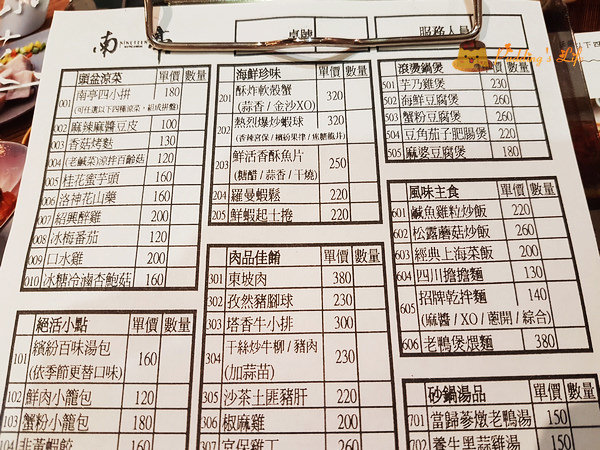 南亭
桌號
服務人員
Pudding's Life
頭盆涼菜 單價 數量
001 南亭四小拼 180
(可任選以下四種涼菜，組成拼盤)
002 麻辣麻醬豆皮 100
003 香菇烤麩 130
004 (老鹹菜)涼拌百齡菇 120
005 桂花蜜芋頭 160
006 洛神花山藥 160
007 紹興醉雞 200
008 冰梅番茄 120
009 口水雞 200
010 冰糖冷滷杏鮑菇 160
絕活小點 單價 數量
101 繽紛百味湯包 160
(依季節更替口味)
102 鮮肉小籠包 120
103 蟹粉小籠包 180
104 韭黃蝦餃 160
海鮮珍味 單價 數量
201 酥炸軟殼蟹 320
(蒜香 / 金沙XO)
202 熱烈爆炒蝦球 320
(香辣宮保 / 檳紛果律 / 焦糖脆片)
203 鮮活香酥魚片 250
(糖醋 / 蒜香 / 干燒)
204 羅曼蝦鬆 220
205 鮮蝦起士捲 220
肉品佳餚 單價 數量
301 東坡肉 380
302 孜然豬腳球 230
303 塔香牛小排 300
304 干絲炒牛柳 / 豬肉 230
(加蒜苗)
305 沙茶土匪豬肝 220
306 椒麻雞 220
307 宮保雞丁 260
滾燙鍋煲 單價 數量
501 芋乃雞煲 230
502 海鮮豆腐煲 260
503 蟹粉豆腐煲 260
504 豆角茄子肥腸煲 220
505 麻婆豆腐煲 180
風味主食 單價 數量
601 鹹魚雞粒炒飯 220
602 松露蘑菇炒飯 260
603 經典上海菜飯 200
604 四川擔擔麵 130
605 招牌乾拌麵 140
(麻醬 / XO / 蔥開 / 綜合)
606 老鴨煲煨麵 380
砂鍋湯品 單價 數量
701 當歸蔘燉老鴨湯 150
702 養生黑蒜雞湯 150